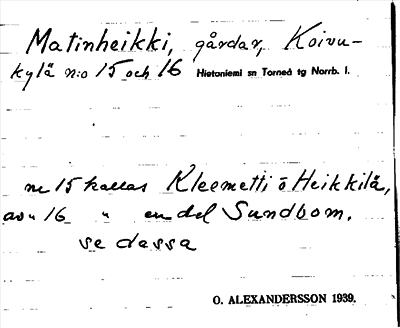 Matinheikki, gårdar, Koivu-
kylä n:o 15 och 16 Hietaniemi sn Torneå tg Norrb. l.
nr 15 kallas Kleemetti o Heikkilä,
av n 16 " en del Sundbom.
se dessa
O. ALEXANDERSSON 1939.